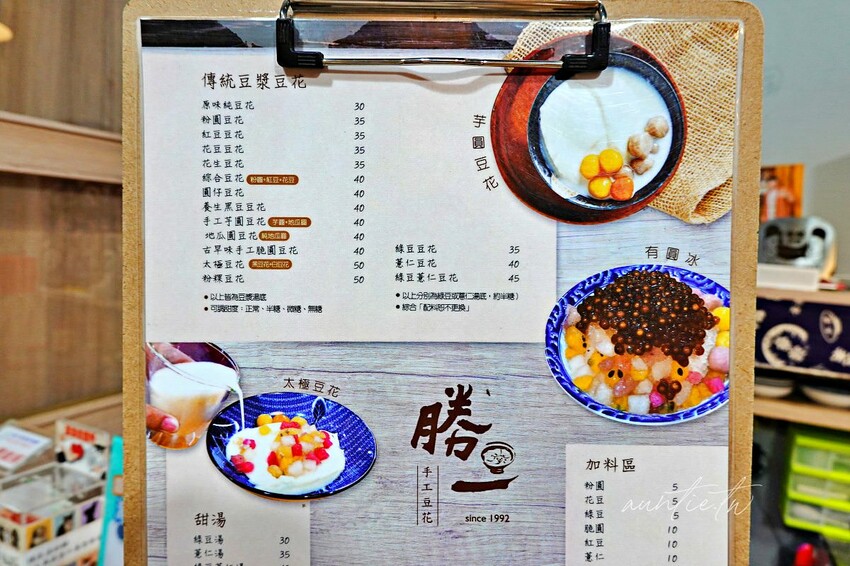 傳統豆漿豆花
原味純豆花 30
粉圓豆花 35
紅豆豆花 35
花豆豆花 35
花生豆花 35
綜合豆花 粉圓+紅豆+花豆 40
圓仔豆花 40
養生黑豆豆花 40
手工芋圓豆花 芋圓+地瓜圓 40
地瓜圓豆花 純地瓜圓 40
古早味手工脆圓豆花 40
太極豆花 黑豆花+白豆花 50
粉粿豆花 50
●以上皆為豆漿湯底
●可調甜度：正常、半糖、微糖、無糖
綠豆豆花 35
薏仁豆花 40
綠豆薏仁豆花 45
●以上分別為綠豆或薏仁湯底，約半糖）
●綜合「配料恕不更換」
芋圓豆花
有圓冰
太極豆花
勝一
手工豆花
since 1992
甜湯
綠豆湯 30
薏仁湯 35
加料區
粉圓 5
花豆 5
綠豆 5
脆圓 10
紅豆 10
薏仁 10
auntie.tw